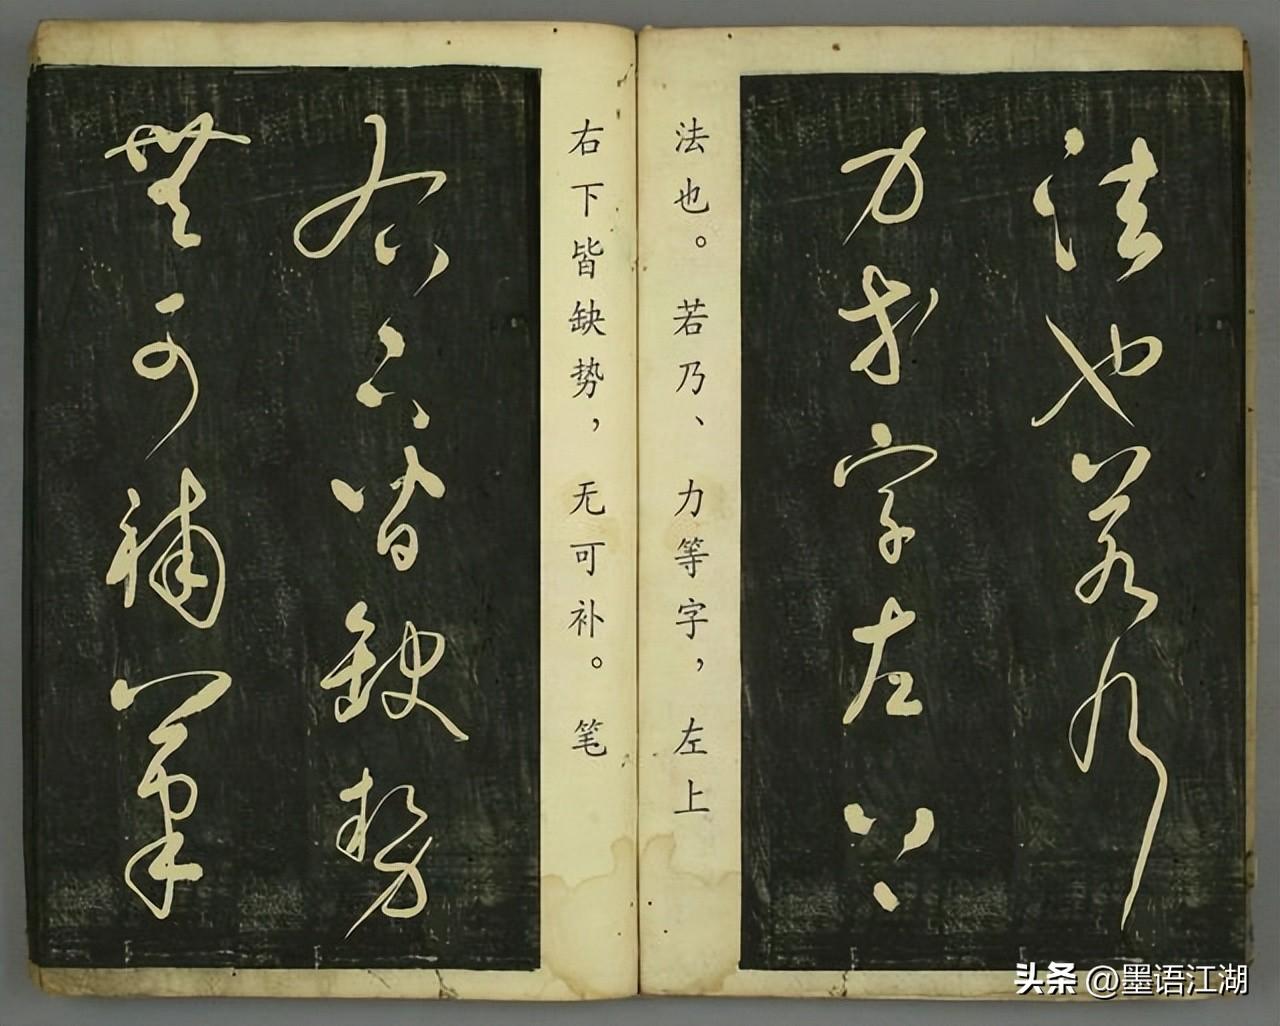 法也若乃
力等字左上
法也。若乃、力等字，左上
右下皆缺势，无可补。笔
右下皆缺勢
無可補筆
头条 @墨语江湖